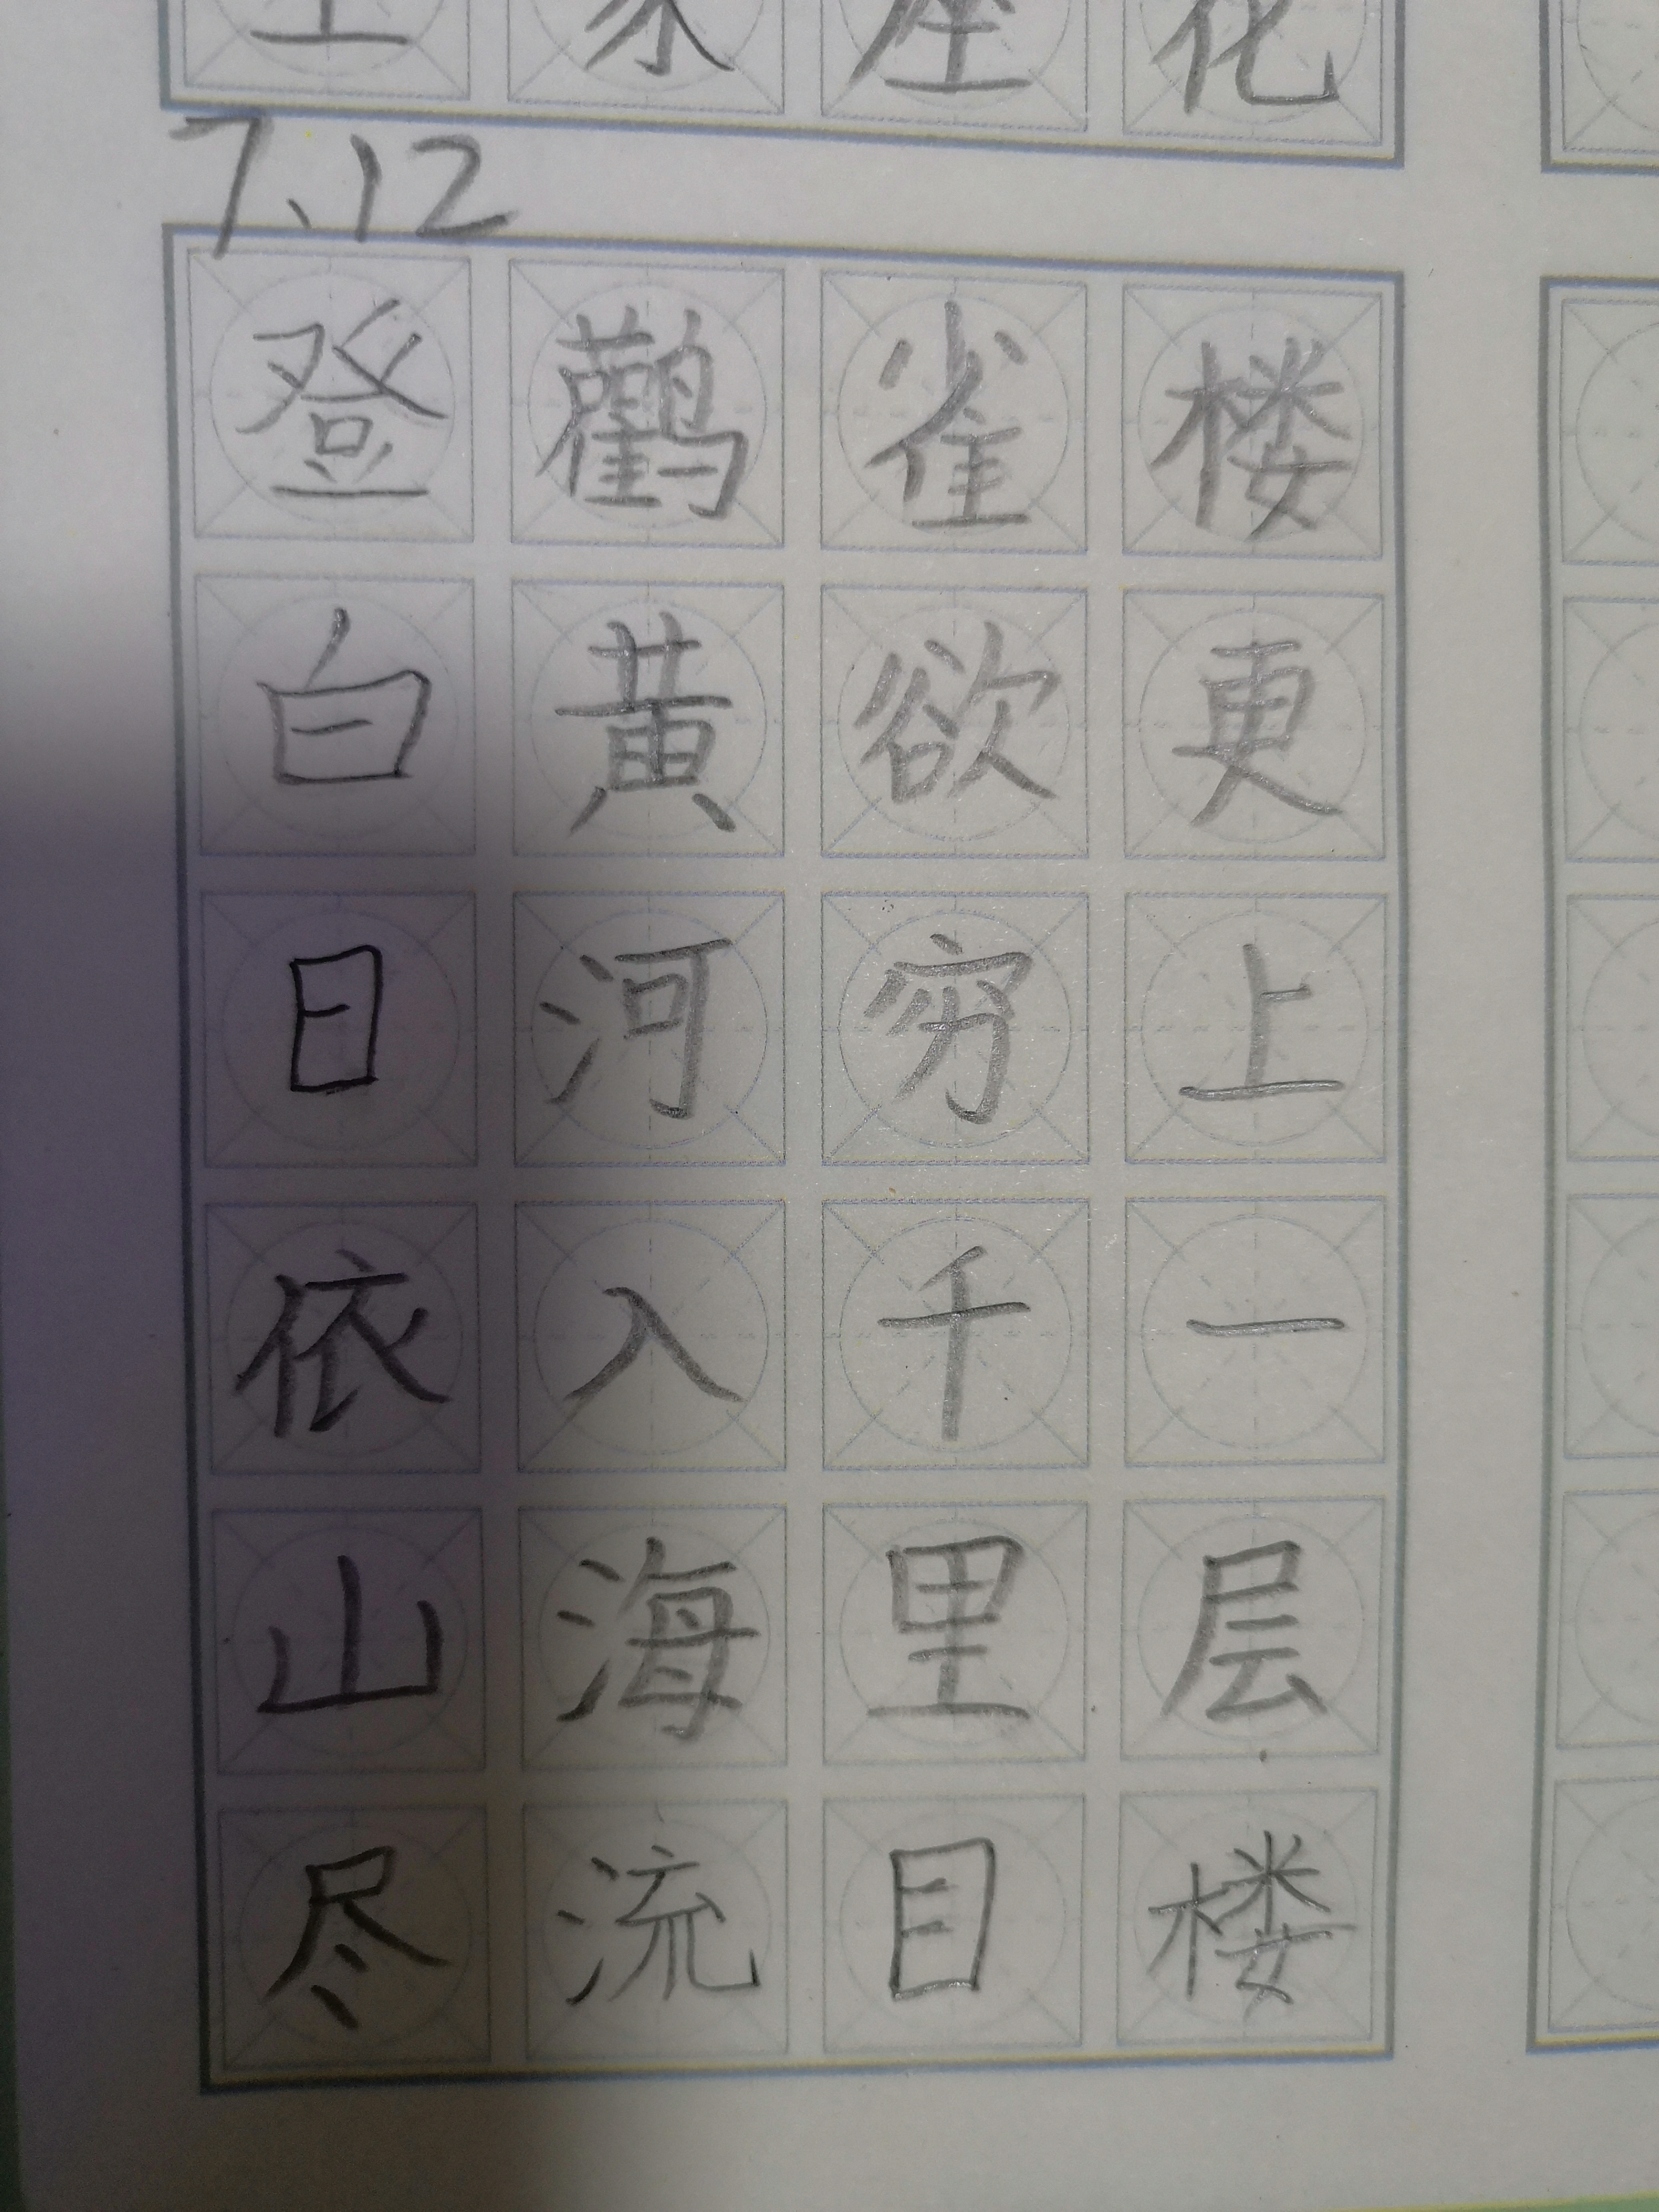 7.12
登鹳雀楼
白日依山尽
黄河入海流
欲穷千里目
更上一层楼